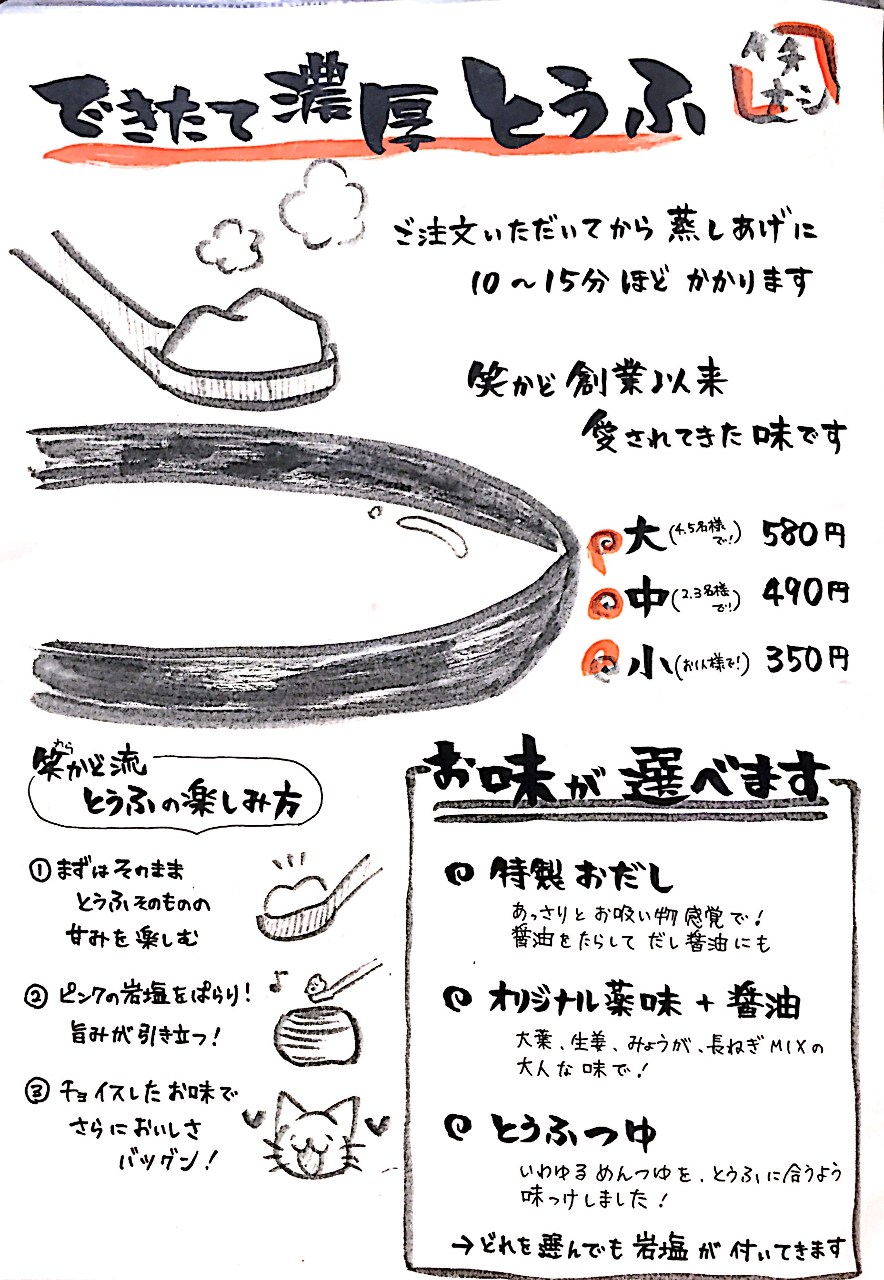 できたて濃厚とうふ
イチ
オシ
ご注文いただいてから 蒸しあげに
10～15分ほど かかります
笑かど 創業以来
愛されてきた味です
大(4.5名様で!) 580円
中(2.3名様で!) 490円
小(お1人様で!) 350円
笑かど流
わら
とうふの楽しみ方
①まずはそのまま
とうふそのものの
甘みを楽しむ
②ピンクの岩塩をぱらり!
旨みが引き立つ!
③チョイスしたお味で
さらにおいしさ
バツグン!
お味が選べます
特製おだし
あっさりとお吸い物感覚で!
醤油をたらして だし醤油にも
オリジナル薬味+醤油
大葉、生姜、みょうが、長ねぎMIXの
大人な味で!
とうふつゆ
いわゆるめんつゆを、とうふに合うよう
味つけしました!
→どれを選んでも岩塩が付いてきます